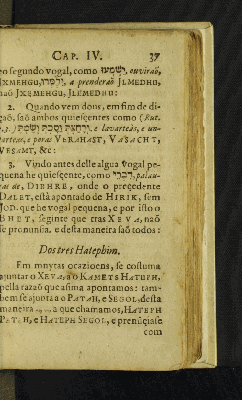 CAP. IV. 37
o segundo vogal, como וְיִשְׁמְעוּ, ouviraõ,
JXMEHGU, וְיִלְמְדוּ, a prenderaõ JLMEDHU,
naõ JXEMEHGU, JLEMEDHU:
2. Quando vem dons, em fim de di-
çaõ, saõ ambos quiescentes como (Rut.
3.) וְרָחַצְתְּ וָסַכְתְּ וְשַׂמְתְּ, e lavarteàs, e un-
arteas, e poras VERAHAST, VASACHT,
VESAMT, &c:
3. Vindo antes delle algua vogal pe-
quena he quiescente, como דִּבְרֵי, palau-
ras de, DIBHRE, onde o precedente
DALET, està apontado de HIRIK, sem
JOD, que he vogal pequena, e por isto o
BHET, seginte que tras XEVA, naõ
se pronunsia. e desta maneira saõ todos:
Dos tres Hatephim.
Em muytas ocazioens, se costuma
ajuntar o XEVA, a o KAMETS HATUPH,
pella razaõ que asima apontamos: tam-
bem se ajonta a o PATAH, e SEGOL, desta
maneira a que chamamos, HATEPH
PATAH, e HATEPH SEGOL, e prenũciase
com